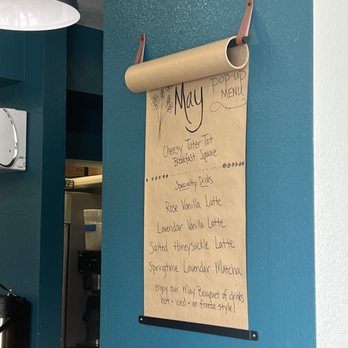 May
pop-up
MENU
Cheesy Tater Tot
Breakfast Square
Specialty Drinks
Rose Vanilla Latte
Lavendar Vanilla Latte
Salted Honeysuckle Latte
Springtime Lavendar Matcha
enjoy our May Bouquet of drinks
hot - iced - or freeze style!